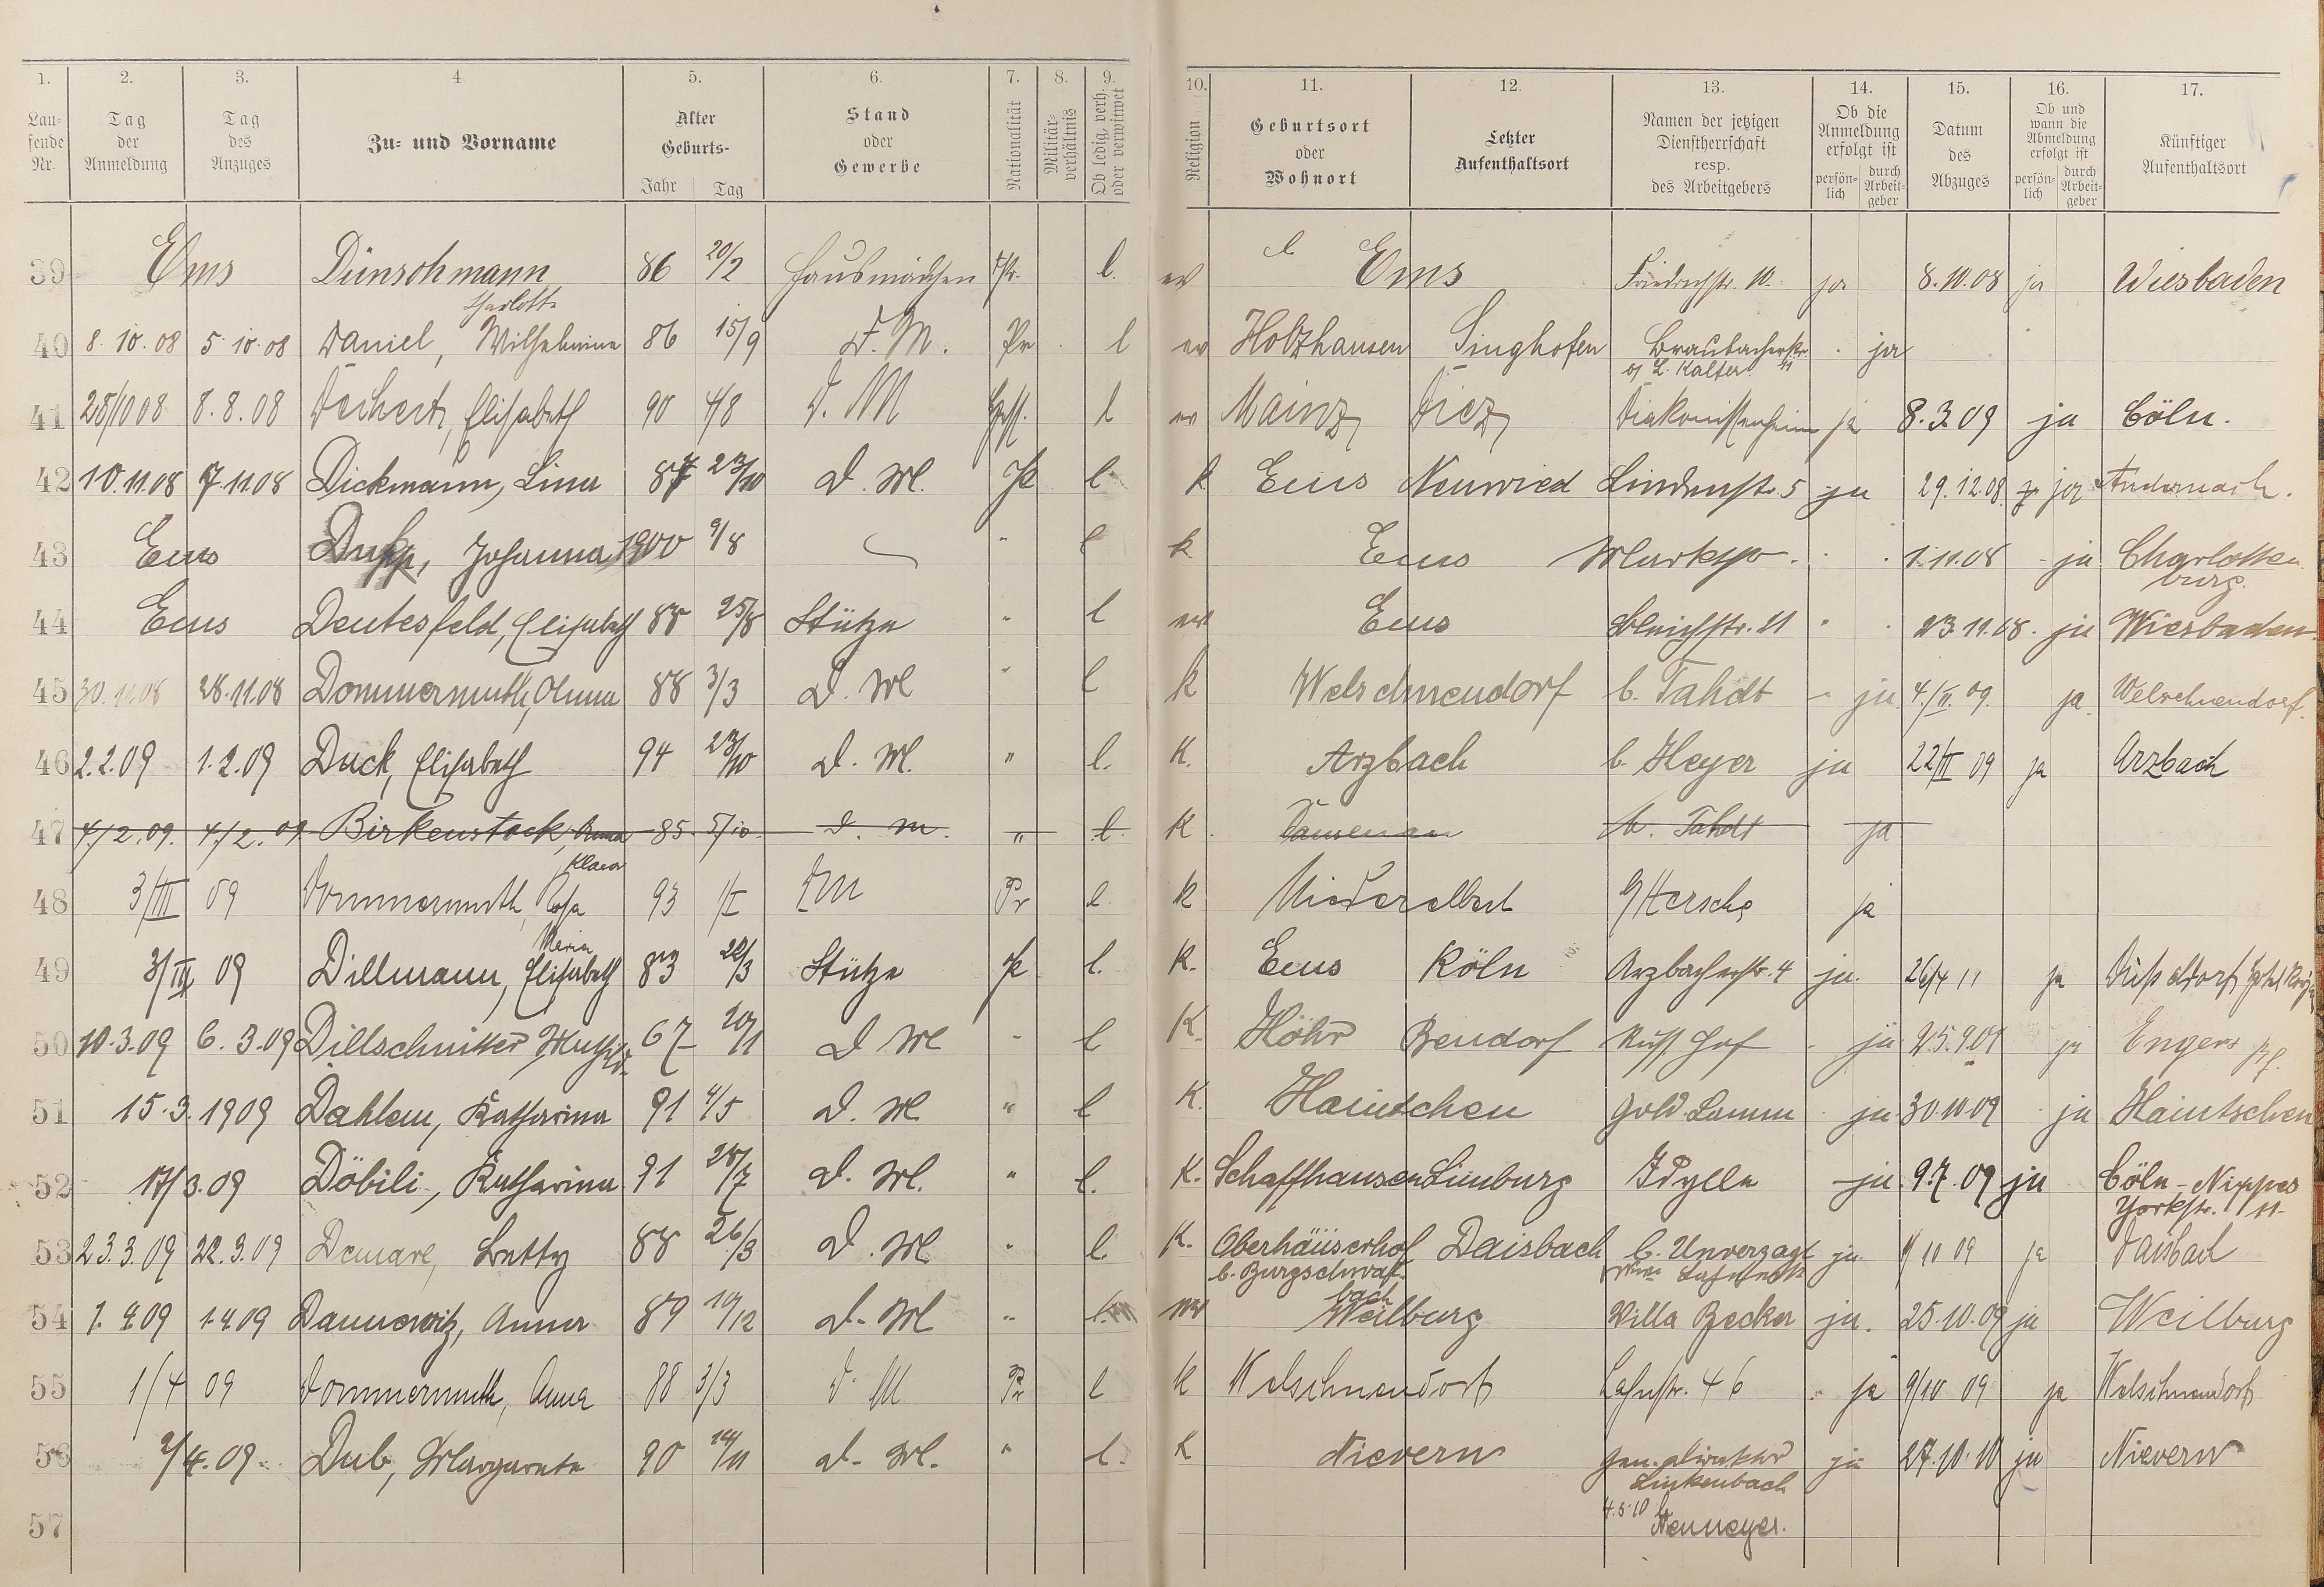 1. 2. 3. 4. 5. 6. 7. 8. 9. 10. 11. 12. 13. 14. 15. 16. 17.
Lau-
fende
Nr.
Tag
der
Anmeldung
Tag
des
Anzuges
Zu- und Vorname
Alter
Geburts-
Jahr Tag
Stand
oder
Gewerbe
Nationalität
Militär-
verhältnis
Ob ledig, verh.
oder verwitwet
Religion
Geburtsort
oder
Wohnort
Letzter
Aufenthaltsort
Namen der jetzigen
Dienstherrschaft
resp.
des Arbeitgebers
Ob die
Anmeldung
erfolgt ist
persön-
lich
durch
Arbeit-
geber
Datum
des
Abzuges
Ob und
wann die
Abmeldung
erfolgt ist
persön-
lich
durch
Arbeit-
geber
Künftiger
Aufenthaltsort
39 Ems Dünschmann 86 20/2 Hausmädchen Pr. l. ev Ems Friedrichstr. 10. ja 8.10.08 ja Wiesbaden
Charlotte
40 8.10.08 5.10.08 Daniel, Wilhelmine 86 15/9 D. M. Pr l ev Holzhausen Singhofen Braubacherstr. ja
b/ L. Kalter
41 28/10 08 8.8.08 Deichert, Elisabeth 90 4/8 D. M Hess. l ev Mainz Diez Diakonissenheim ja 8.3.09 ja Cöln.
42 10.11.08 7.11.08 Dickmann, Lina 87 23/10 D. M. Pr l k Ems Neuwied Lindenstr. 5 ja 29.12.08 ja Andernach.
43 Ems Johanna 1900 9/8 " l k Ems Marktstr. 1.11.08 ja Charlotten
burg.
44 Ems Deutesfeld, Elisabeth 88 25/8 Stütze " l ev Ems Bleichstr. 11 23.11.08. ja Wiesbaden.
45 30.11.08 28.11.08 Dommermuth, Anna 88 3/3 D. M " l k Welschneudorf b. Fahdt ja 4./II. 09. ja. Welschneudorf.
46 2.2.09 1.2.09 Duck, Elisabeth 94 23/10 D. M. " l. K. Arzbach b. Heyer ja 22/II 09 ja Arzbach
47 4./2.09. 4./2.09. Birkenstock, Anna 85. 5/10. D. M. " l. K. Dausenau b. Fahdt ja
Klara
48 3/III 09 Dommermuth, Rosa 93 1/I DM Pr l. k Niederelbert b/ Hersche ja
Maria
49 3/III 09 Dillmann, Elisabeth 83 Stütze Pr l. K. Ems Köln Arzbacherstr. 4 ja. 26/4 11 ja Düsseldorf Hotel
50 10.3.09 6.3.09 Dillschnitter Mathild. 67 20/11 D M " l K. Höhr Bendorf Russ. Hof ja 25.9.09 ja Engers
51 15.3.1909 Dahlem, Katharina 91 4/5 D. M. " l K. Haintchen Gold. Lamm ja 30.10.09 ja Haintschen
52 17/3.09 Döbili, Katharina 91 28/7 D. M. " l. K. Schaffhausen Limburg Idylle ja. 9.7.09 ja Cöln-Nippes
Yorkstr. 11.
53 23.3.09 22.3.09 Demare, Betty 88 26/3 D. M. " l. K. Oberhäuserhof Daisbach b. Unverzagt ja. 1/10 09 ja Daisbach
b. Burgschwal-
bach
54 1.4.09 1.4.09 Dannewitz, Anna 89 10/12 D. M " l. ev Weilburg Villa Becker ja. 25.10.09 ja Weilburg
55 1/4 09 Dommermuth, Anna 88 3/3 D. M Pr l k Welschneudorf Lahnstr. 46 ja 9/10 09 ja Welschneudorf
56 2/4.09. Dub, Margareta 90 14/11 D. M. " l. K Nievern Gen. Direktor ja 27.10.10 ja Nievern
Linkenbach
4.5.10 b.
57 Nenneyer.